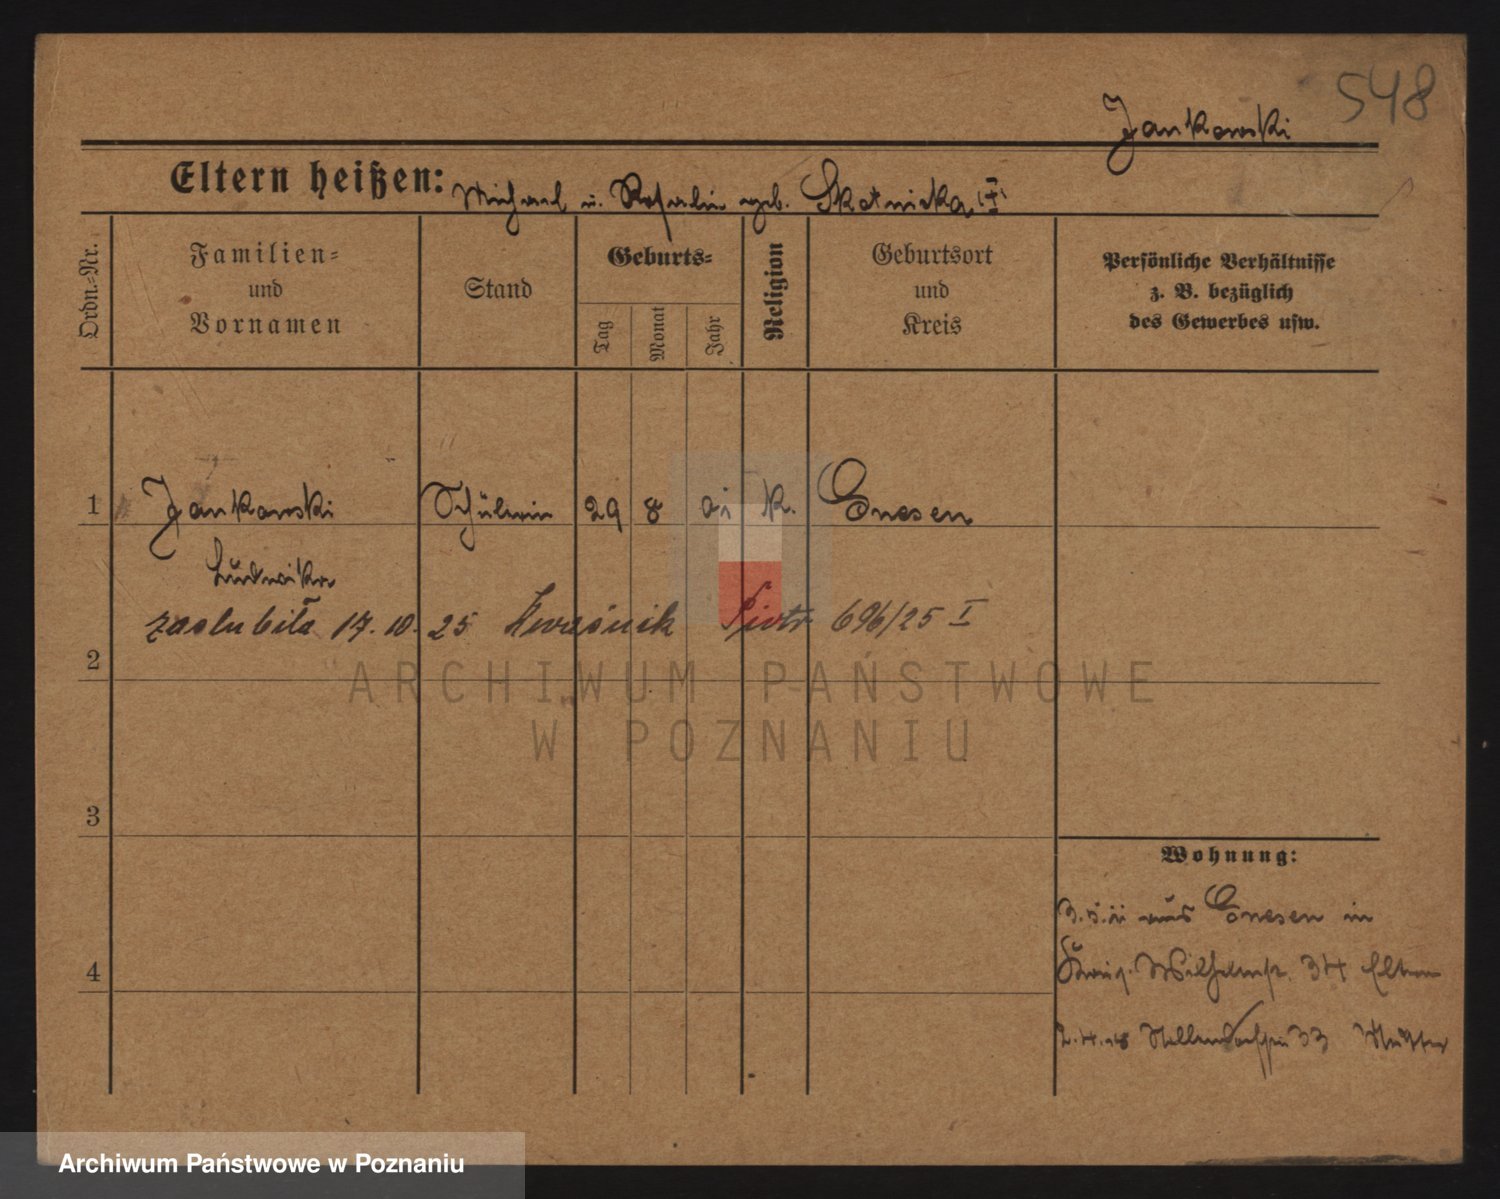 548
Jankowski
Eltern heißen: Michael u. Rosalie geb. Skotnicka
Ordn.-Nr.
Familien-
und
Vornamen
Stand
Geburts-
Tag
Monat
Jahr
Religion
Geburtsort
und
Kreis
Persönliche Verhältnisse
z. B. bezüglich
des Gewerbes usw.
1 Jankowski Schülerin 29 8 01 K. Gnesen
Ludwika
zaślubiła 17. 10. 25 Kwaśnik Piotr 696/25 I
2
ARCHIWUM PAŃSTWOWE
W POZNANIU
3
Wohnung:
3.5.11 aus Gnesen in
4
34 Eltern
33 Mutter
Archiwum Państwowe w Poznaniu